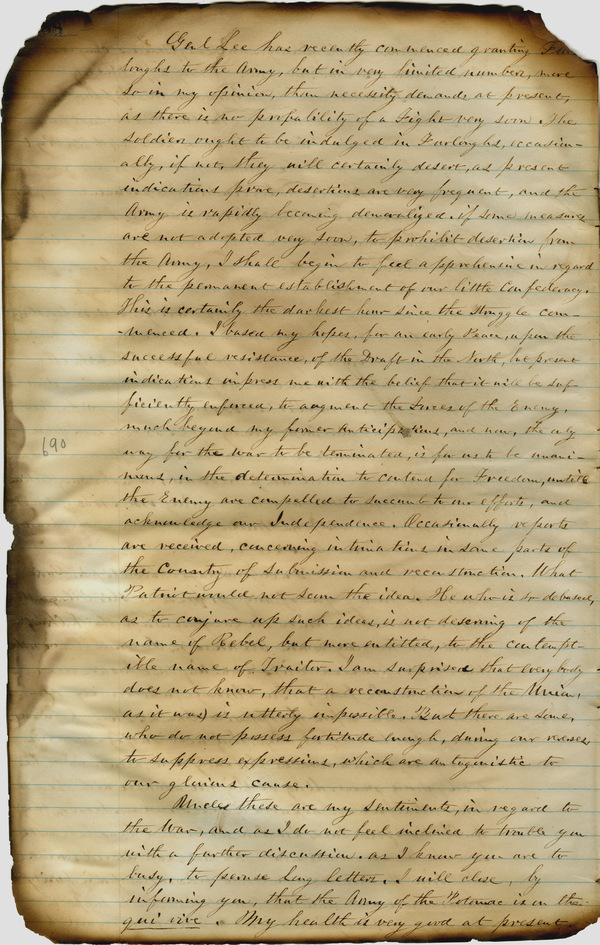 Genl Lee has recently commenced granting Fur
loughs to the Army, but in very limited numbers, more
so in my opinion, than necessity demands at present,
as there is no probability of a Fight very soon. The
soldiers ought to be indulged in Furloughs, occasion-
ally, if not, they will certainly desert, as present
indications prove, desertions are very frequent, and the
Army is rapidly becoming demoralized. if some measures
are not adopted very soon, to prohibit desertion from
the Army, I shall begin to feel apprehensive in regard
to the permanent establishment of our little Confederacy.
This is certainly the darkest hour since the Struggle com-
-menced. I based my hopes, for an early Peace, upon the
successful resistance, of the Draft in the North, but present
indications impress me with the belief that it will be suf-
ficiently enforced, to augment the Forces of the Enemy,
much beyond my former anticipations, and now, the only
way for the war to be terminated, is for us to be unani-
mous, in the determination to contend for Freedom, untile
the Enemy are compelled to succumb to our efforts, and
acknowledge our Independence. Occasionally reports
690
are received, concerning intimations in some parts of
the Country, of submission and reconstruction. What
Patriot would not scorn the idea. He who is so debased,
as to conjure up such ideas, is not deserving of the
name of Rebel, but more entitled, to the contempt-
ible name of Traitor. I am surprised that everybody
does not know, that a reconstruction of the Union,
as it was) is utterly impossible. But there are some,
who do not possess fortitude enough, during our reverses,
to suppress expressions, which are antagonistic to
our glorious cause.
Uncles these are my sentiments, in regard to
the War, and as I do not feel inclined to trouble you
with a further discussion. as I know you are to
busy, to peruse long letters. I will close, by
informing you, that the Army of the Potomac is on the
qui vive. My health is very good at present